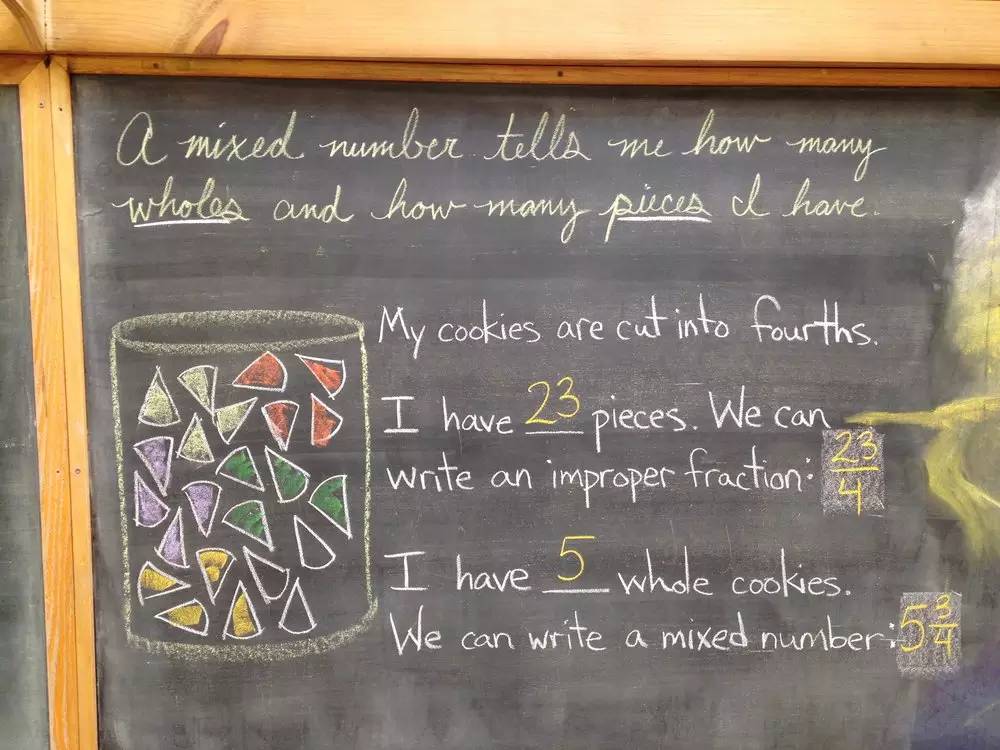 A mixed number tells me how many
wholes and how many pieces I have.
My cookies are cut into fourths.
I have 23 pieces. We can
write an improper fraction: 23/4
I have 5 whole cookies.
We can write a mixed number: 5 3/4